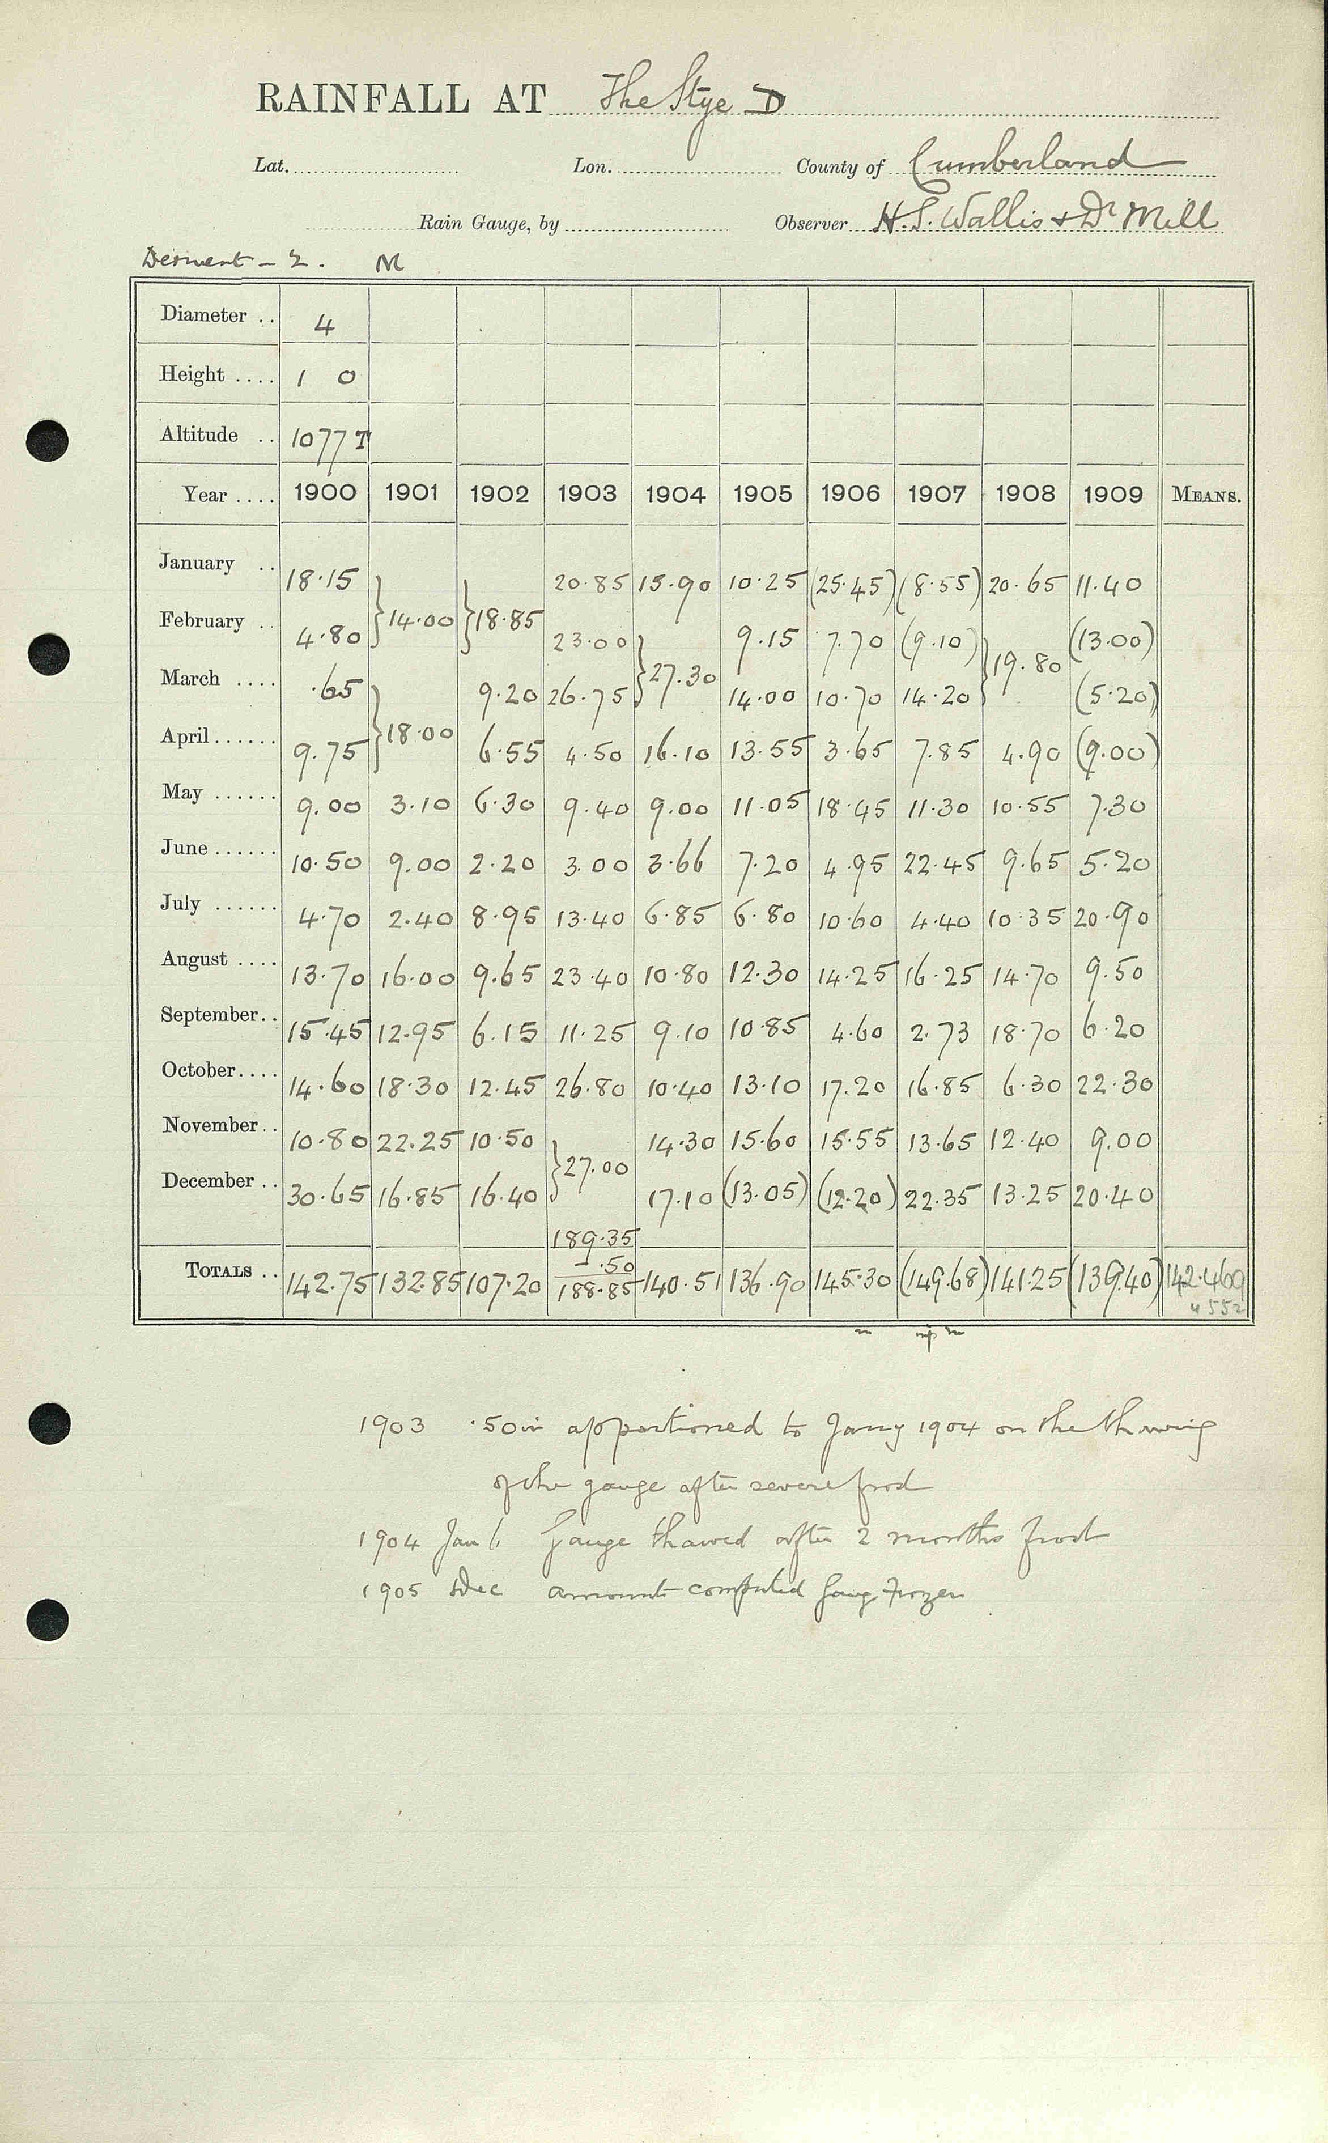 RAINFALL AT The Stye D
Lat. Lon. County of Cumberland
Rain Gauge, by Observer H.S. Wallis + Dr Mill
Derwent - 2. M
Diameter .. 4
Height .... 1 0
Altitude .. 1077 T
Year .... 1900 1901 1902 1903 1904 1905 1906 1907 1908 1909 MEANS.
January .. 18.15 } 14.00 } 18.85 20.85 15.90 10.25 (25.45) (8.55) 20.65 11.40
February .. 4.80 23.00 } 27.30 9.15 7.70 (9.10) } 19.80 (13.00)
March .... .65 } 18.00 9.20 26.75 14.00 10.70 14.20 (5.20)
April...... 9.75 6.55 4.50 16.10 13.55 3.65 7.85 4.90 (9.00)
May ...... 9.00 3.10 6.30 9.40 9.00 11.05 18.45 11.30 10.55 7.30
June ...... 10.50 9.00 2.20 3.00 3.66 7.20 4.95 22.45 9.65 5.20
July ...... 4.70 2.40 8.95 13.40 6.85 6.80 10.60 4.40 10.35 20.90
August .... 13.70 16.00 9.65 23.40 10.80 12.30 14.25 16.25 14.70 9.50
September.. 15.45 12.95 6.15 11.25 9.10 10.85 4.60 2.73 18.70 6.20
October.... 14.60 18.30 12.45 26.80 10.40 13.10 17.20 16.85 6.30 22.30
November.. 10.80 22.25 10.50 } 27.00 14.30 15.60 15.55 13.65 12.40 9.00
December .. 30.65 16.85 16.40 17.10 (13.05) (12.20) 22.35 13.25 20.40
189.35
- .50
TOTALS .. 142.75 132.85 107.20 188.85 140.51 136.90 145.30 (149.68) 141.25 (139.40) 142.469
1903 .50in apportioned to Jany 1904 on the thawing
of the gauge after severe frost
1904 Jan 6 Gauge thawed after 2 months frost
1905 Dec amount computed Gauge Frozen